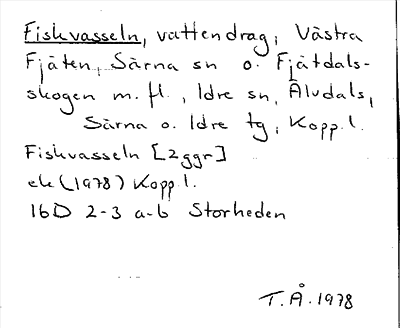 Fiskvasseln, vattendrag, Västra
Fjäten, Särna sn o. Fjätdals-
skogen m.fl., Idre sn, Älvdals,
Särna o. Idre tg, Kopp.l.
Fiskvasseln [2ggr]
ek (1978) Kopp.l.
16D 2-3 a-b Storheden
T.Å. 1978